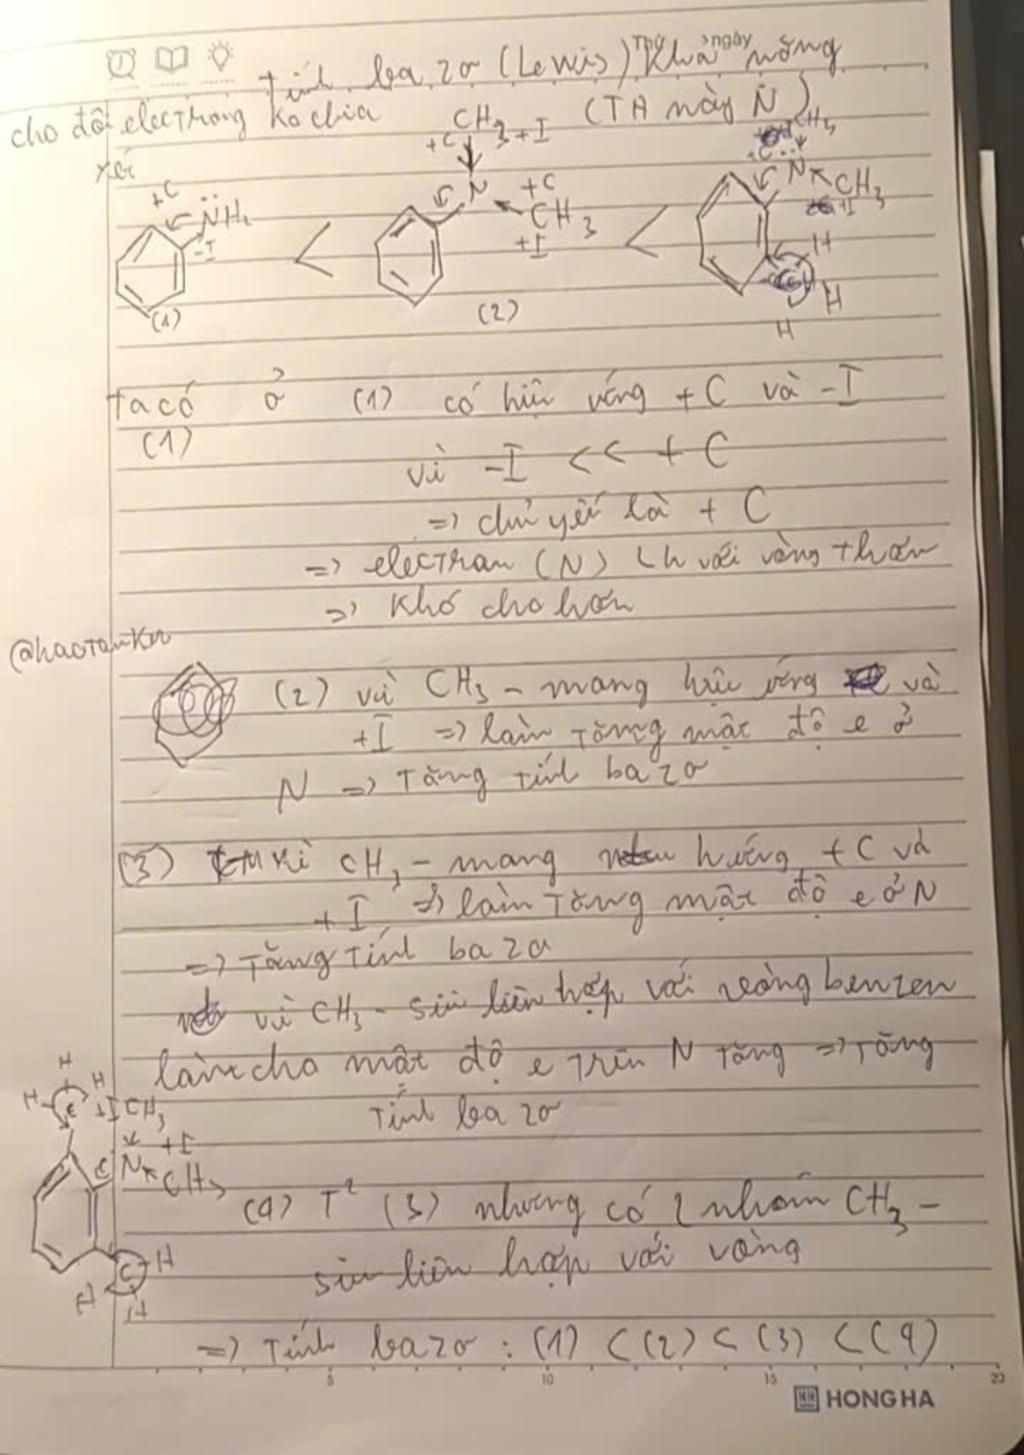 Thứ ngày
tính bazơ (Lewis) Khả năng
cho đôi electrong ko chia (TH này N)
+C CH3 +I
CH3
xét
+C NH2 -I
N +C CH3 +I
N CH3
< <
H
H
H
(1) (2)
Ta có ở (1) có hiệu ứng +C và -I
(1)
vì -I << +C
=> chủ yếu là +C
=> electran (N) LH với vòng thơm
=> Khó cho hơn
(2) vì CH3 - mang hiệu ứng và
+I => làm tăng mật độ e ở
N => Tăng tính bazơ
(3) CH3 - mang hướng +C và
+I => làm Tăng mật độ e ở N
=> Tăng Tính bazơ
vì CH3 - siêu liên hợp với vòng benzen
làm cho mật độ e Trên N Tăng => Tăng
Tính bazơ
H
H H
C +I CH3
+I
N CH3
(4) T² (3) nhưng có 2 nhóm CH3 -
siêu liên hợp với vòng
C H
H H
=> Tính bazơ : (1) < (2) < (3) < (4)
5 10 15 20
HONG HA